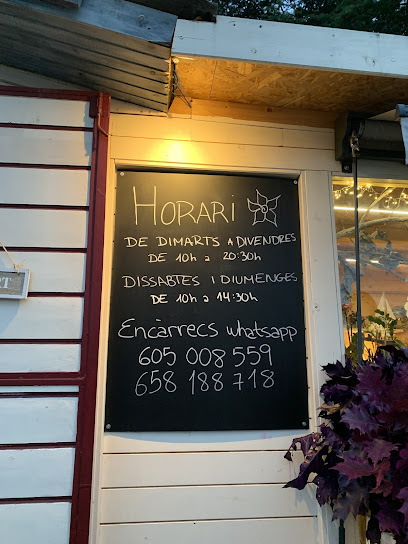 HORARI
DE DIMARTS A DIVENDRES
DE 10h a 20:30h
DISSABTES I DIUMENGES
DE 10h a 14:30h
Encàrrecs whatsapp
605 008 559
658 188 718